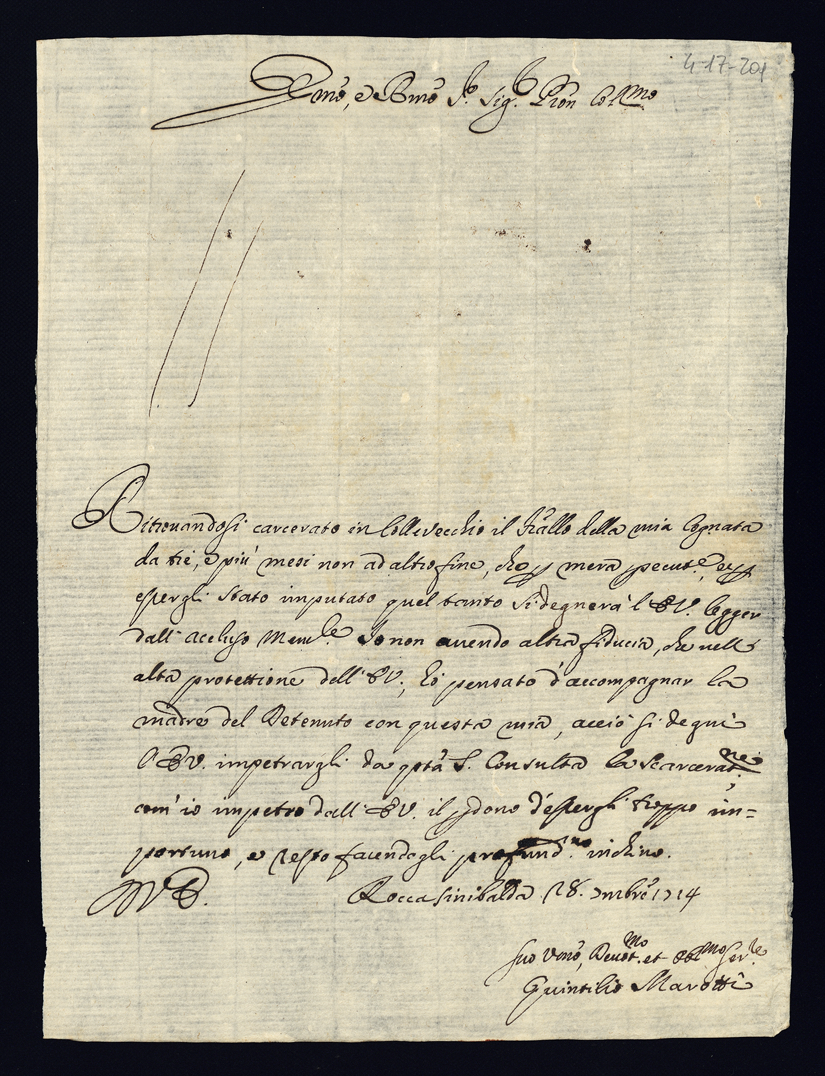 4-17-201
Emo, e Rmo Sr. Sig.r Pron Collmo
Ritrovandosi carcerato in Collevecchio il frallo della mia Cognata
da tre, e più mesi non ad altro fine, che p mera pecut.e, e p
essergli stato imputato quel tanto si degnerà l'EV. legger
dall' acchiuso Mem.le Io non avendo altra fiducia, che nell
alta protettione dell' EV., hò pensato d'accompagnar la
madre del Detenuto con questa mia, acciò si degni
l'EV. impetrargli da qsta S. Consulta la scarcerat.ne
com' io impetro dall' EV. il pdono d'essergli troppo im=
portuno, e resto facendogli profund.mo inchino.
DVE.
Rocca Sinibalda 28. 9mbre 1714
suo Vmo, Devot.mo et Obl.mo Ser.le
Quintilio Marotti